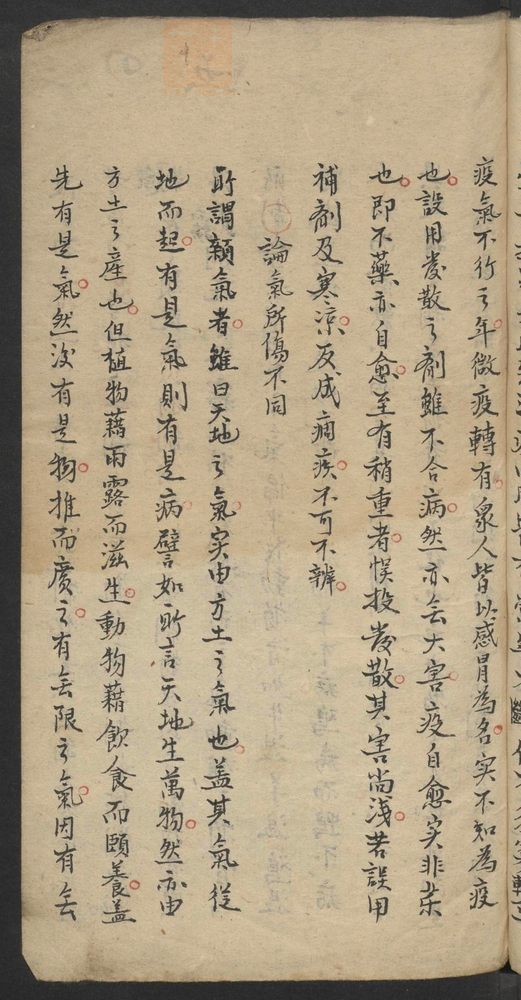 疫氣不行之年微疫轉有衆人皆以感冒為名实不知為疫
也設用发散之劑雖不合病然亦无大害疫自愈实非药
也即不藥亦自愈至有稍重者悮投发散其害尚浅若誤用
補劑及寒凉反成痼疾不可不辨
論氣所傷不同
所謂雜氣者雖曰天地之氣实由方土之氣也盖其氣從
地而起有是氣則有是病譬如所言天地生萬物然亦由
方土之產也但植物藉雨露而滋生動物藉飲食而頤養盖
先有是氣然后有是物推而廣之有无限之氣因有无